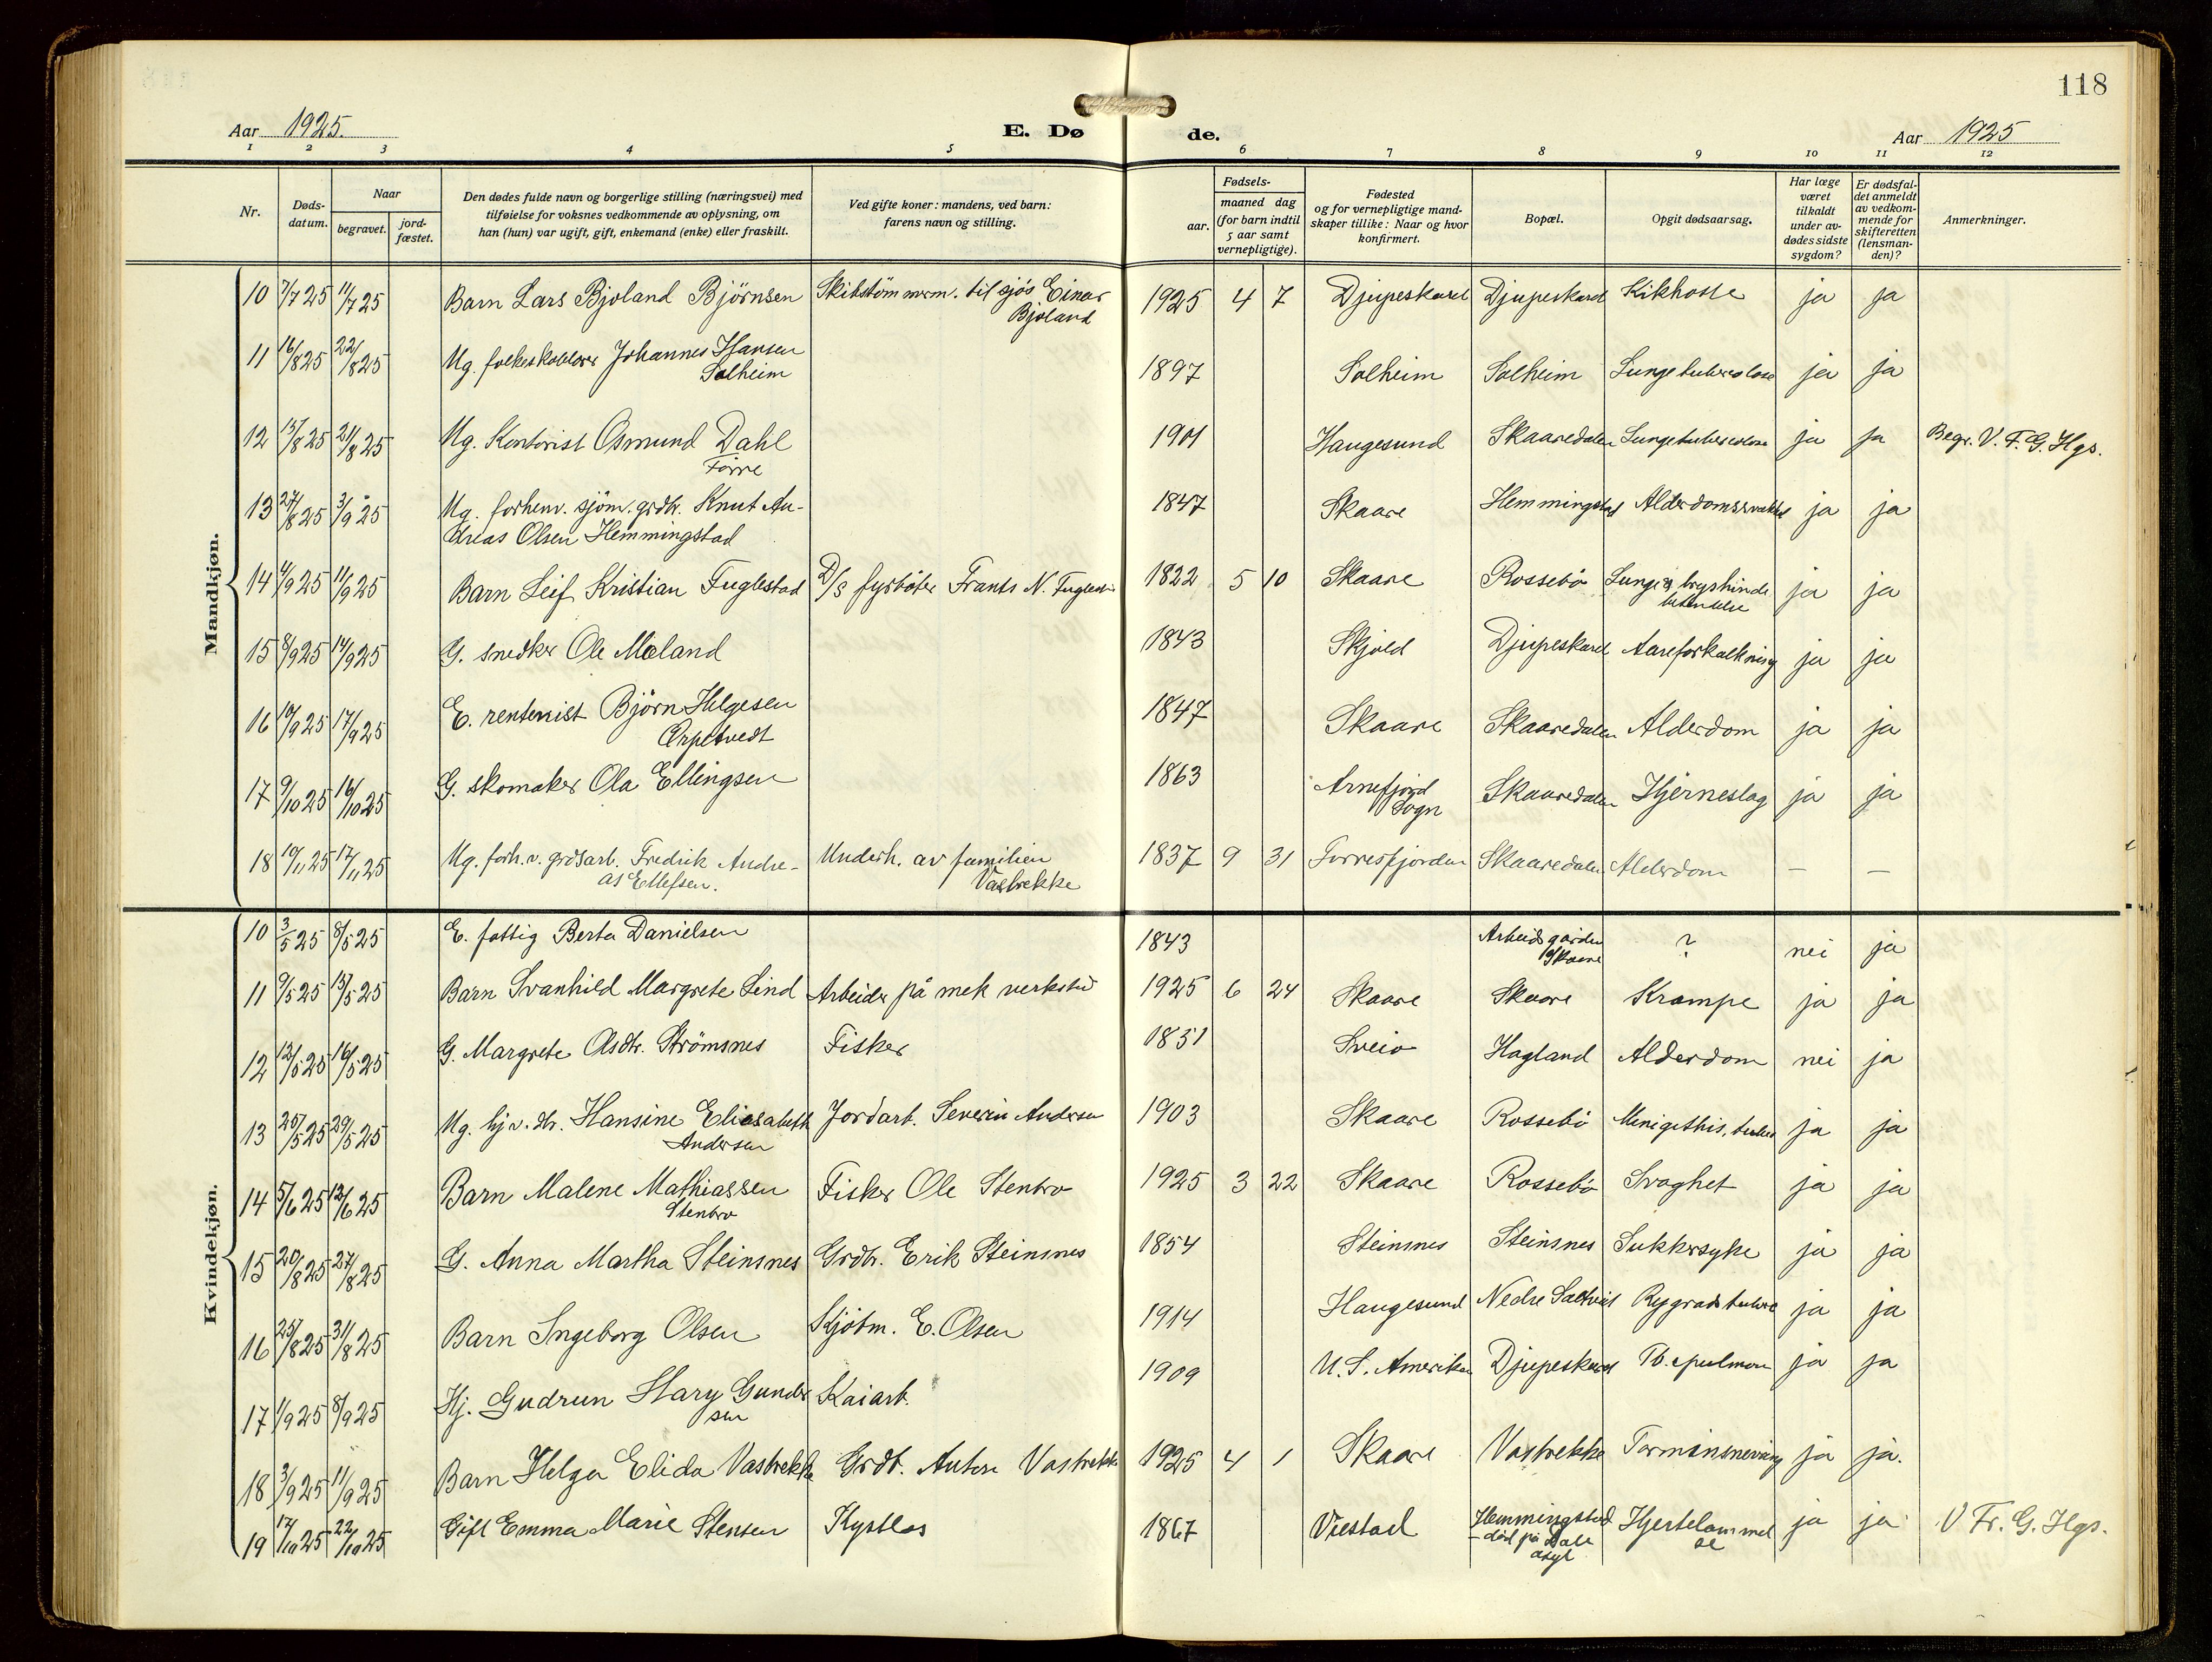 118
Aar 1925.
E. Dø de.
Aar 1925
1 2 3 4 5 6 7 8 9 10 11 12
Nr.
Døds-
datum.
Naar
begravet.
jord-
fæstet.
Den dødes fulde navn og borgerlige stilling (næringsvei) med
tilføielse for voksnes vedkommende av oplysning, om
han (hun) var ugift, gift, enkemand (enke) eller fraskilt.
Ved gifte koner: mandens, ved barn:
farens navn og stilling.
aar.
Fødsels-
maaned dag
(for barn indtil
5 aar samt
vernepligtige).
Fødested
og for vernepligtige mand-
skaper tillike: Naar og hvor
konfirmert.
Bopæl.
Opgit dødsaarsag.
Har læge
været
tilkaldt
under av-
dødes sidste
sygdom?
Er dødsfal-
det anmeldt
av vedkom-
mende for
skifteretten
(lensman-
den)?
Anmerkninger.
Mandkjøn.
10 7/7 25 11/7 25 Barn Lars Bjoland Björnsen Skibstömmerm. til sjøs Einar 1925 4 7 Djupeskard Djupeskard Kikhoste ja ja
Bjoland
11 16/8 25 22/8 25 Ug. folkeskolelærer Johannes Hansen 1897 Solheim Solheim Lungetuberculose ja ja
Solheim
12 15/8 25 21/8 25 Ug. Kontorist Osmund Dahl 1901 Haugesund Skaaredalen Lungetuberculose ja ja Begr. V. F. G. Hgs.
Förre
13 27/8 25 3/9 25 Ug. forhenv. sjöm. grdbr. Knut An- 1847 Skaare Hemmingstad Alderdomssvakhet ja ja
dreas Olsen Hemmingstad
14 4/9 25 11/9 25 Barn Leif Kristian Fuglestad D/S fyrböter Frants N. Fuglestad 1822 5 10 Skaare Rossebö Lunge & brysthinde ja ja
betendelse
15 8/9 25 14/9 25 G. snedker Ole Moland 1843 Skjold Djupeskard Aareforkalkning ja ja
16 10/9 25 17/9 25 E. rentenist Björn Helgesen 1847 Skaare Skaaredalen Alderdom ja ja
Orpetvedt
17 9/10 25 16/10 25 G. skomaker Ola Ellingsen 1863 Arnefjord Skaaredalen Hjerneslag ja ja
Sogn
18 10/11 25 17/11 25 Ug. forh. v. grdsarb. Fredrik Andre- Underh. av familien 1837 9 31 Førresfjorden Skaaredalen Alderdom — —
as Ellefsen. Vasbrekke
Kvindekjøn.
10 3/5 25 8/5 25 E. fattig Berta Danielsen 1843 Arbeidsgården ? nei ja
Skaare
11 9/5 25 13/5 25 Barn Svanhild Margrete Lind Arbeider på mek verksted 1925 6 24 Skaare Skaare Krampe ja ja
12 12/5 25 16/5 25 G. Margrete Asdtr. Strömsnes Fisker 1851 Sveio Hagland Alderdom nei ja
13 25/5 25 29/5 25 Ug. hj. v. dtr. Hansine Eliesabeth Jordarb. Severin Andersen 1903 Skaare Rossebö Minigithis, tuber ja ja
Andersen
14 5/6 25 12/6 25 Barn Malene Mathiassen Fisker Ole Stenbro 1925 3 22 Skaare Rossebö Svaghet ja ja
Stenbro
15 20/8 25 27/8 25 G. Anna Martha Steinsnes Grdbr. Erik Steinsnes 1854 Steinsnes Steinsnes Sukkersyke ja ja
16 25/8 25 31/8 25 Barn Ingeborg Olsen Skjötm. E. Olsen 1914 Haugesund Nedre Saltveit Rygradstuberc ja ja
17 1/9 25 8/9 25 Hj. Gudrun Mary Gunder Kaiarb. 1909 U. S. Amerika Djupeskard Tb. pulmon ja ja
sen
18 3/9 25 11/9 25 Barn Helga Elida Vasbrekke Grdb. Anton Vasbrekke 1925 4 1 Skaare Vasbrekke Tarminsnevring ja ja.
19 17/10 25 22/10 25 Gift Emma Marie Stensen Kystlos 1867 Viestad Hemmingstad Hjertelammel ja ja V Fr. G. Hgs.
– död på Dale se
asyl